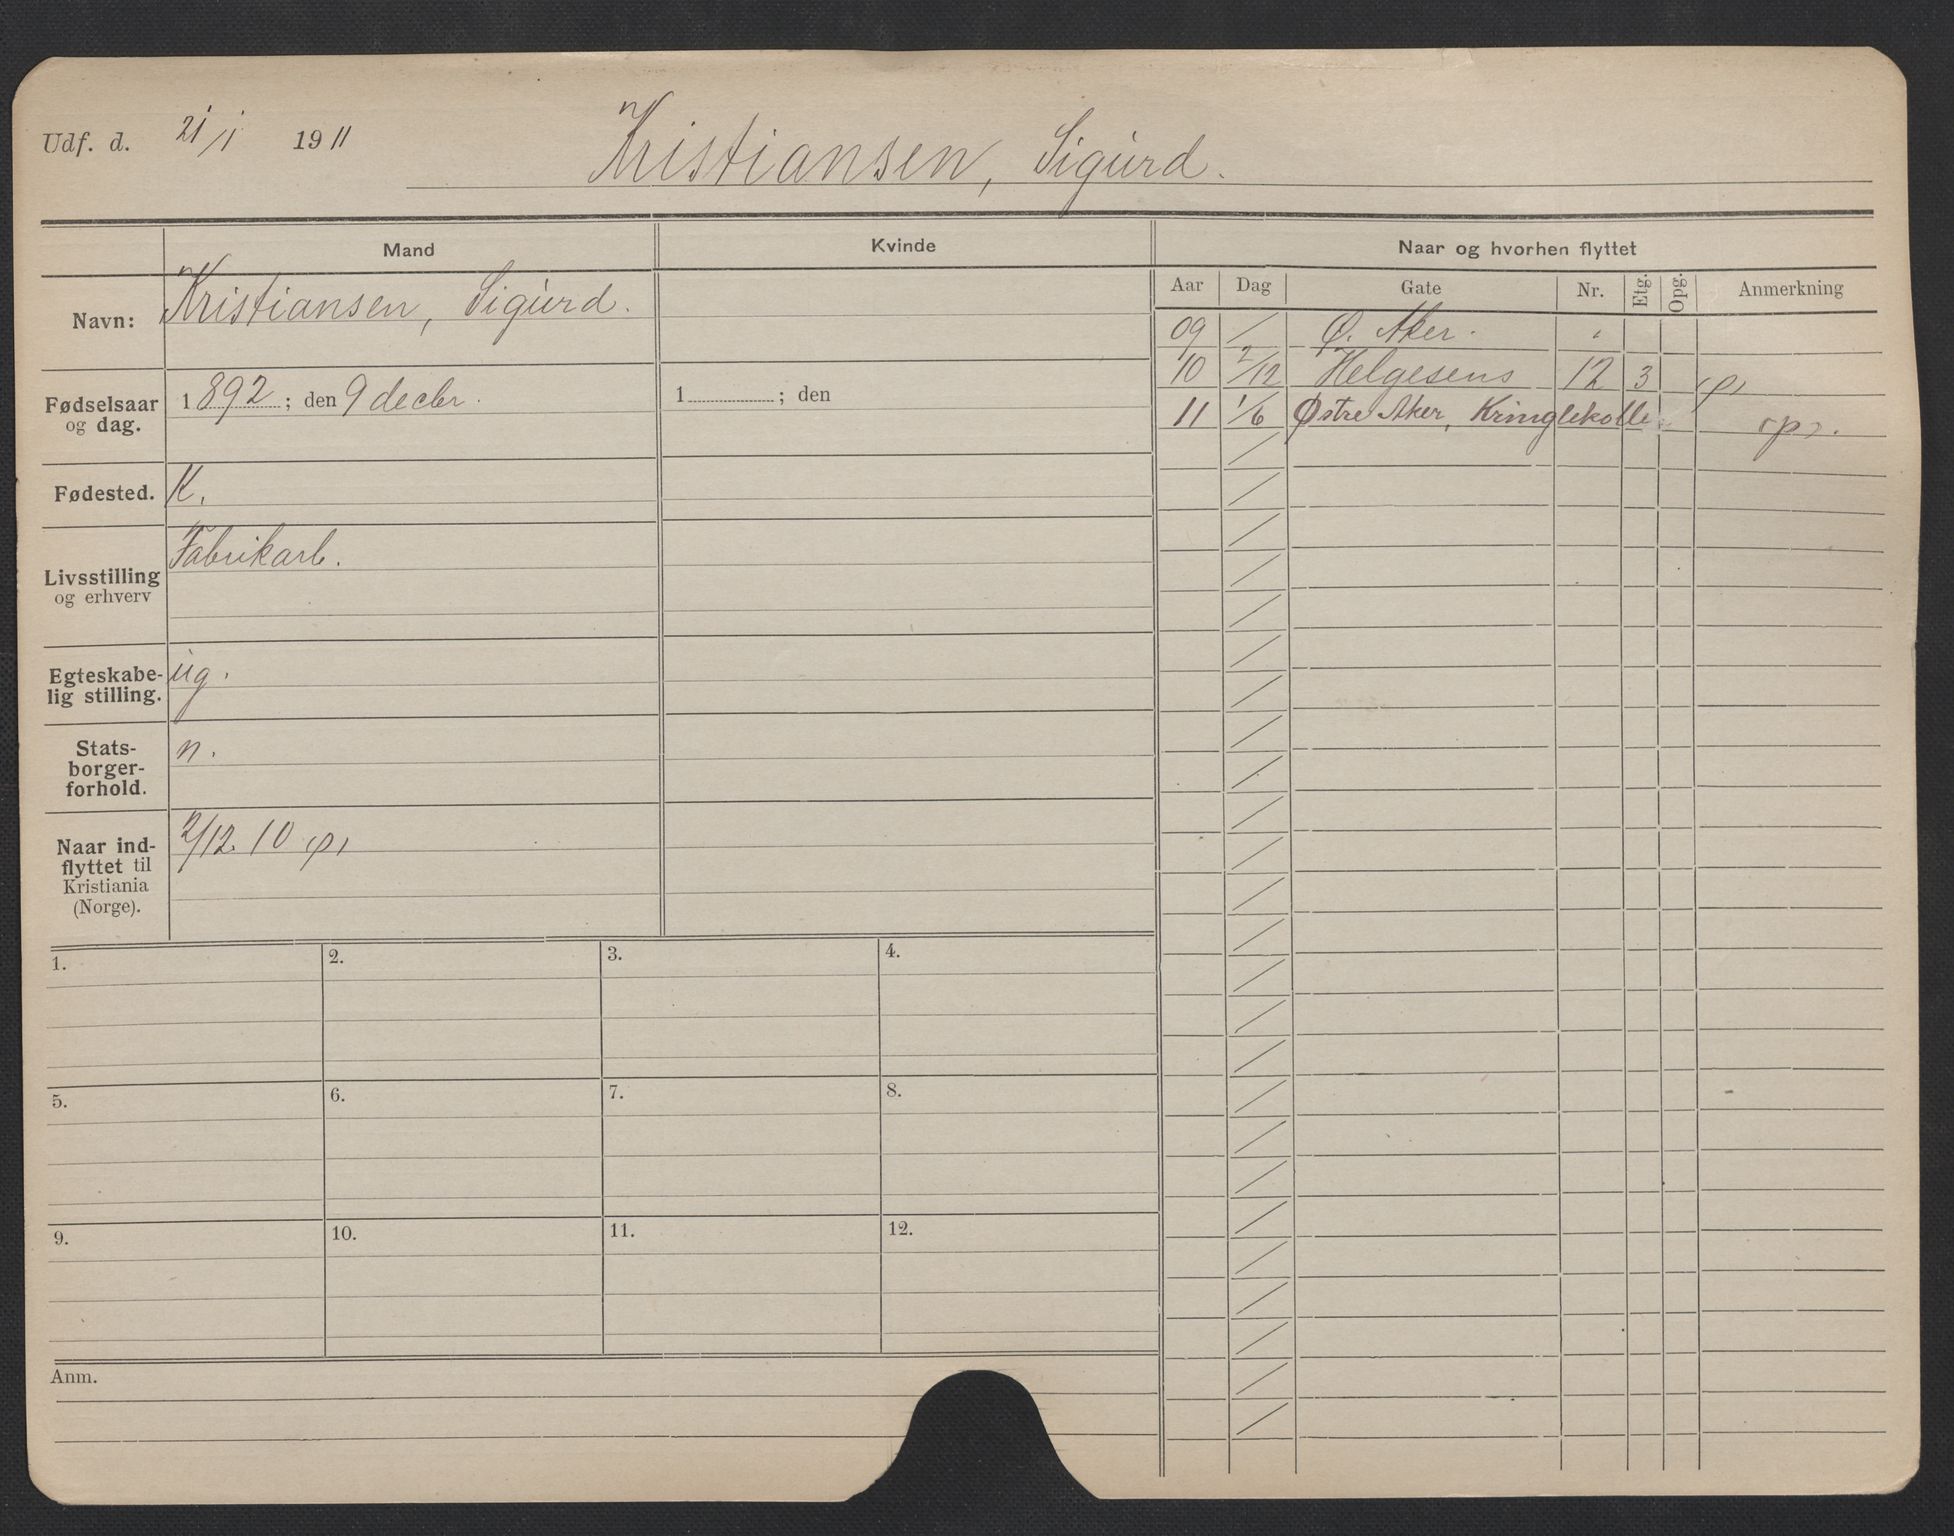 Udf. d. 21/1 1911 Kristiansen, Sigurd.
Mand Kvinde Naar og hvorhen flyttet
Aar Dag Gate Nr. Etg. Opg. Anmerkning
Navn: Kristiansen, Sigurd.
09 / Ø. Aker.
10 2/12 Helgesens 12 3 (p)
11 1/6 Østre Aker, Kringlekolle (p).
Fødselsaar
og dag. 1892; den 9 decbr. 1 ; den
Fødested. K.
Livsstilling
og erhverv Fabrikarb.
Egteskabe-
lig stilling. ug.
Stats-
borger-
forhold. n.
Naar ind-
flyttet til
Kristiania
(Norge). 2/12. 10 (p)
1. 2. 3. 4.
5. 6. 7. 8.
9. 10. 11. 12.
Anm.